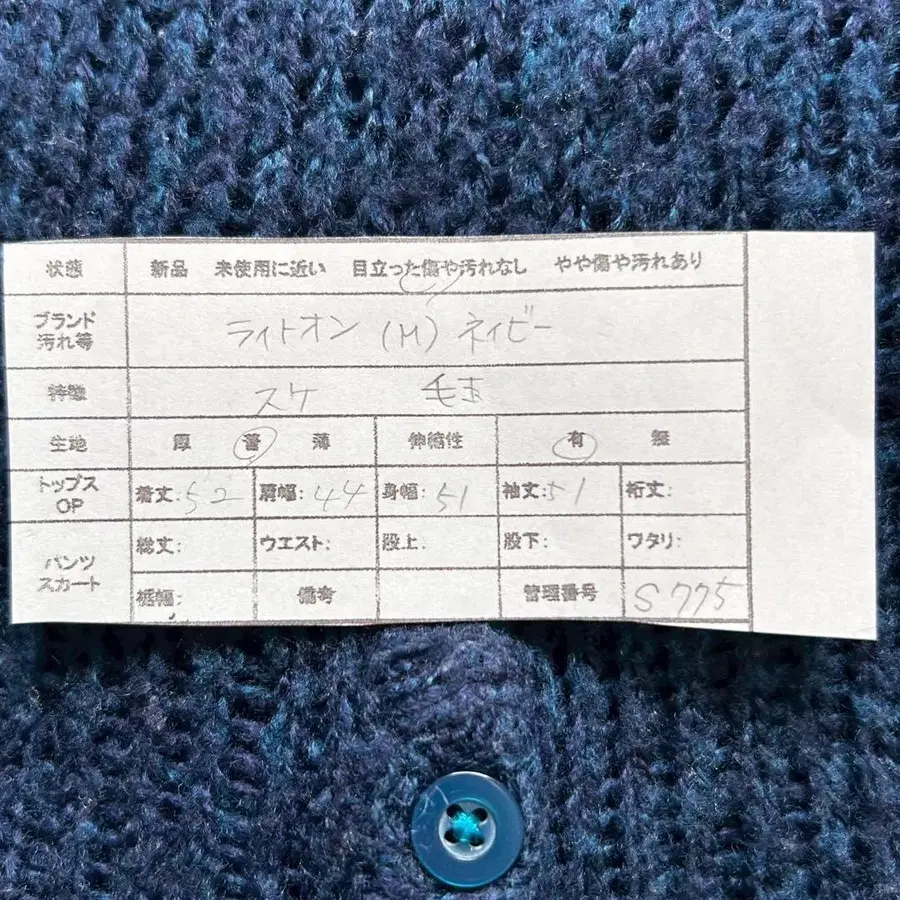 状態 新品 未使用に近い 目立った傷や汚れなし やや傷や汚れあり
ブランド
汚れ等 ライトオン (M) ネイビー
特徴 スケ 毛玉
生地 厚 普 薄 伸縮性 有 無
トップス
OP 着丈:52 肩幅:44 身幅:51 袖丈:51 裄丈:
パンツ
スカート 総丈: ウエスト: 股上: 股下: ワタリ:
裾幅: 備考 管理番号 S775